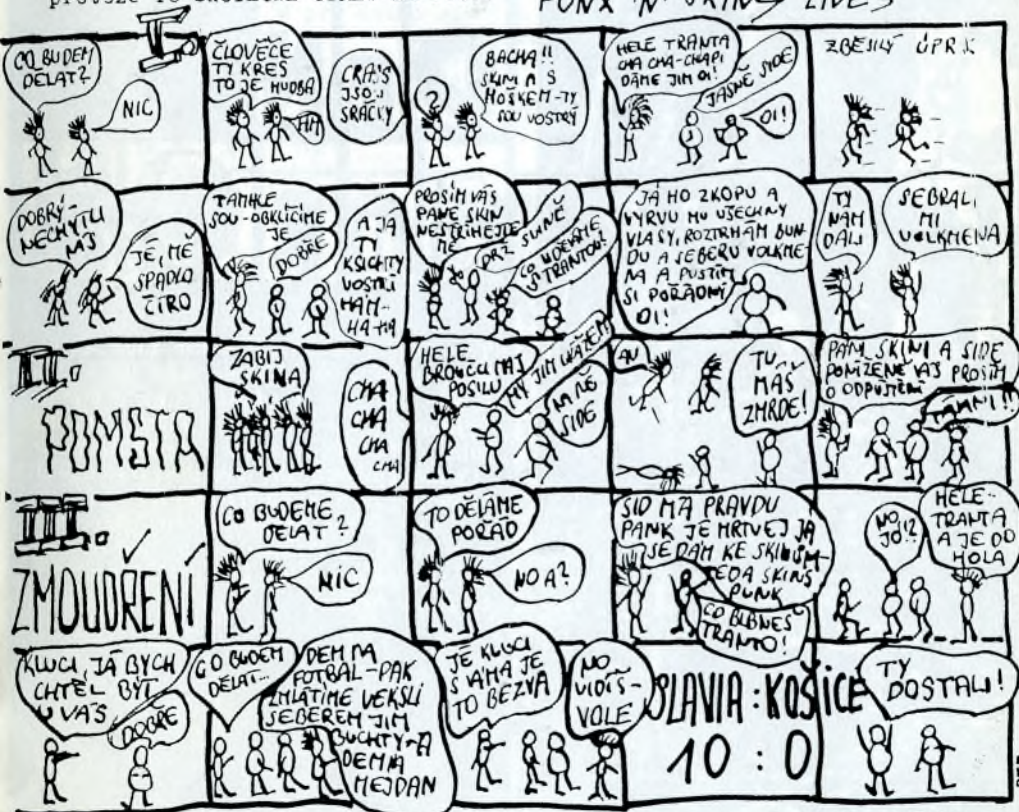 PUNX 'N' SKINS LIVES
I.
CO BUDEM
DĚLAT?
NIC
ČLOVĚČE
TY KRES
TO JE HUDBA
HM
CRASS
JSOU
SRÁČKY
?
BACHA!!
SKINI A S
HOŠKEM-TY
SOU VOSTRÝ
HELE TRANTA
CHA CHA-CHÁPI
DÁME JIM OI!
JASNĚ SIDE
OI!
ZBĚSILÝ ÚPRK
DOBRÝ-
NECHYTLI
NÁS
JÉ, MĚ
SPADLO
ČÍRO
TAMHLE
SOU-OBKLÍČÍME
JE
DOBŘE
A JÁ
TY
KSICHTY
VOSTŘÍ
HÁM-
HA-HA
PROSÍM VÁS
PANE SKIN
NESTŘÍHEJTE
MĚ
DRŽ SVINĚ
CO UDĚLÁME
S TRANTOU?
JÁ HO ZKOPU A
VYRVU MU VŠECHNY
VLASY, ROZTRHÁM BUN-
DU A SEBERU VOLKME-
NA A PUSTÍM
SI POŘÁDNÝ
OI!
TY
NÁM
DALI
SEBRALI
MI
VOLKMENA
II.
POMSTA
ZABIJ
SKINA
CHA
CHA
CHA
CHA
HELE
BROUČCI MAJ
POSILU
MY JIM UKÁŽEM
NA NĚ
SIDE
AU
TU
MÁŠ
ZMRDE!
PÁNI SKINI A SIDE
PONÍŽENĚ VÁS PROSÍM
O ODPUŠTĚNÍ
TÁHNI!!
III.
ZMOUDŘENÍ
CO BUDEME
DĚLAT?
NIC
TO DĚLÁME
POŘÁD
NO A?
SID MÁ PRAVDU
PANK JE MRTVEJ JÁ
SE DÁM KE SKINŮM-
TEDA SKINS
PUNK
CO BLBNEŠ
TRANTO!
NO
JO!?
HELE-
TRANTA
A JE DO
HOLA
KLUCI, JÁ BYCH
CHTĚL BÝT
U VÁS
DOBŘE
CO BUDEM
DĚLAT...
DEM NA
FOTBAL-PAK
ZMLÁTÍME VEKSLI
SEBEREM JIM
BUCHTY-A
DEM NA
MEJDAN
JÉ KLUCI
S VÁMA JE
TO BEZVA
NO
VIDÍŠ-
VOLE
SLAVIA : KOŠICE
10 : 0
TY
DOSTALI!